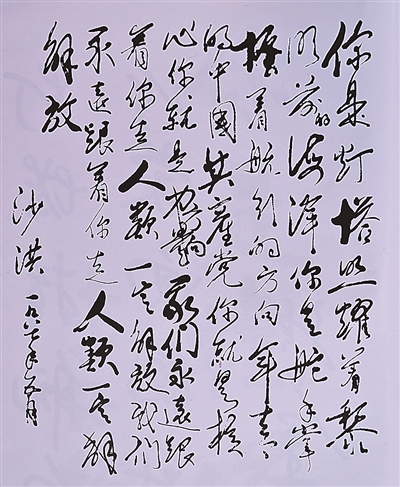 你是灯塔照耀着黎
明前的海洋你是舵手掌
握着航行的方向年青
的中國共產党你就是核
心你就是力量我们永遠跟
着你走人類一定解放我们
永遠跟着你走人類一定解
解放
沙洪
一九八七年五月